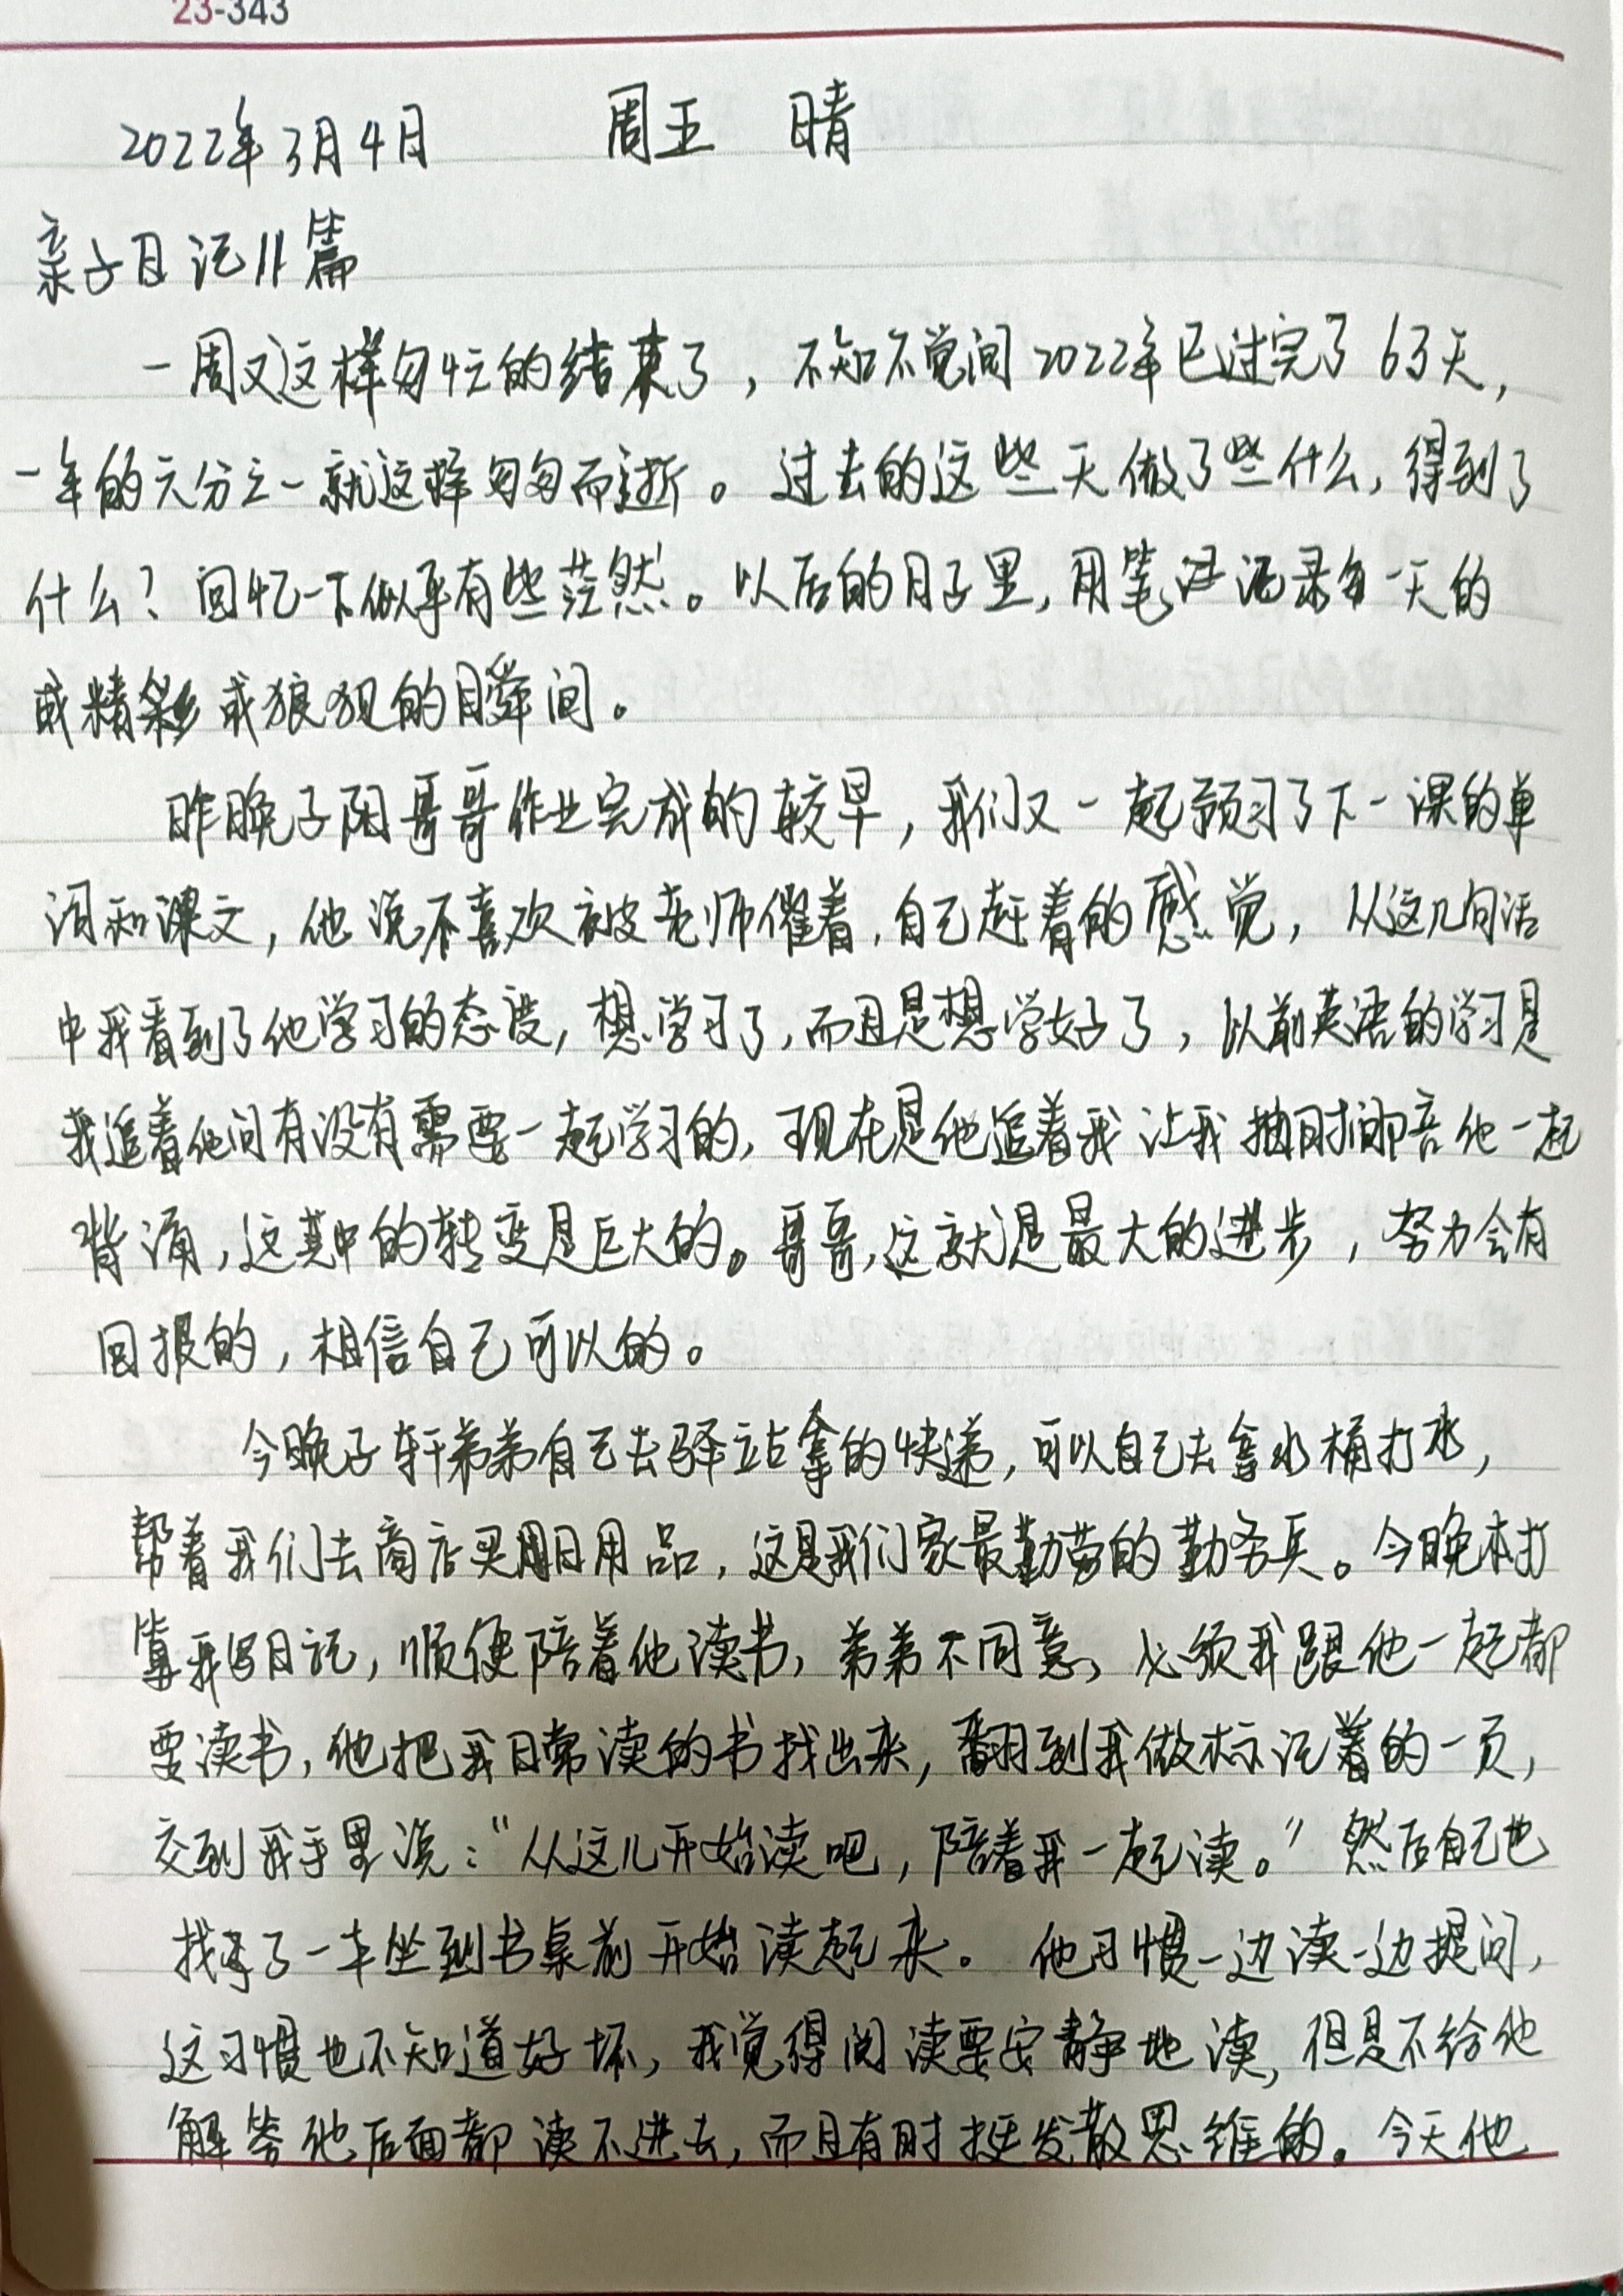 23-343
2022年3月4日 周五 晴
亲子日记11篇
一周又这样匆忙的结束了，不知不觉间2022年已过完了63天，
一年的六分之一就这样匆匆而逝。过去的这些天做了些什么，得到了
什么？回忆一下似乎有些茫然。以后的日子里，用笔记录每一天的
或精彩或狼狈的瞬间。
昨晚子阳哥哥作业完成的较早，我们又一起预习了下一课的单
词和课文，他说不喜欢被老师催着，自己赶着的感觉，从这几句话
中我看到了他学习的态度，想学习了，而且是想学好了，以前英语的学习是
我追着他问有没有需要一起学习的，现在是他追着我让我抽时间陪他一起
背诵，这其中的转变是巨大的。哥哥，这就是最大的进步，努力会有
回报的，相信自己可以的。
今晚子轩弟弟自己去驿站拿的快递，可以自己去拿水桶打水，
帮着我们去商店买日用品，这是我们家最勤劳的勤务兵。今晚本打
算我写日记，顺便陪着他读书，弟弟不同意，必须我跟他一起都
要读书，他把我日常读的书找出来，翻到我做标记着的一页，
交到我手里说：“从这儿开始读吧，陪着我一起读。”然后自己也
找了一本坐到书桌前开始读起来。他习惯一边读一边提问，
这习惯也不知道好坏，我觉得阅读要安静地读，但是不给他
解答他后面都读不进去，而且有时挺发散思维的。今天他